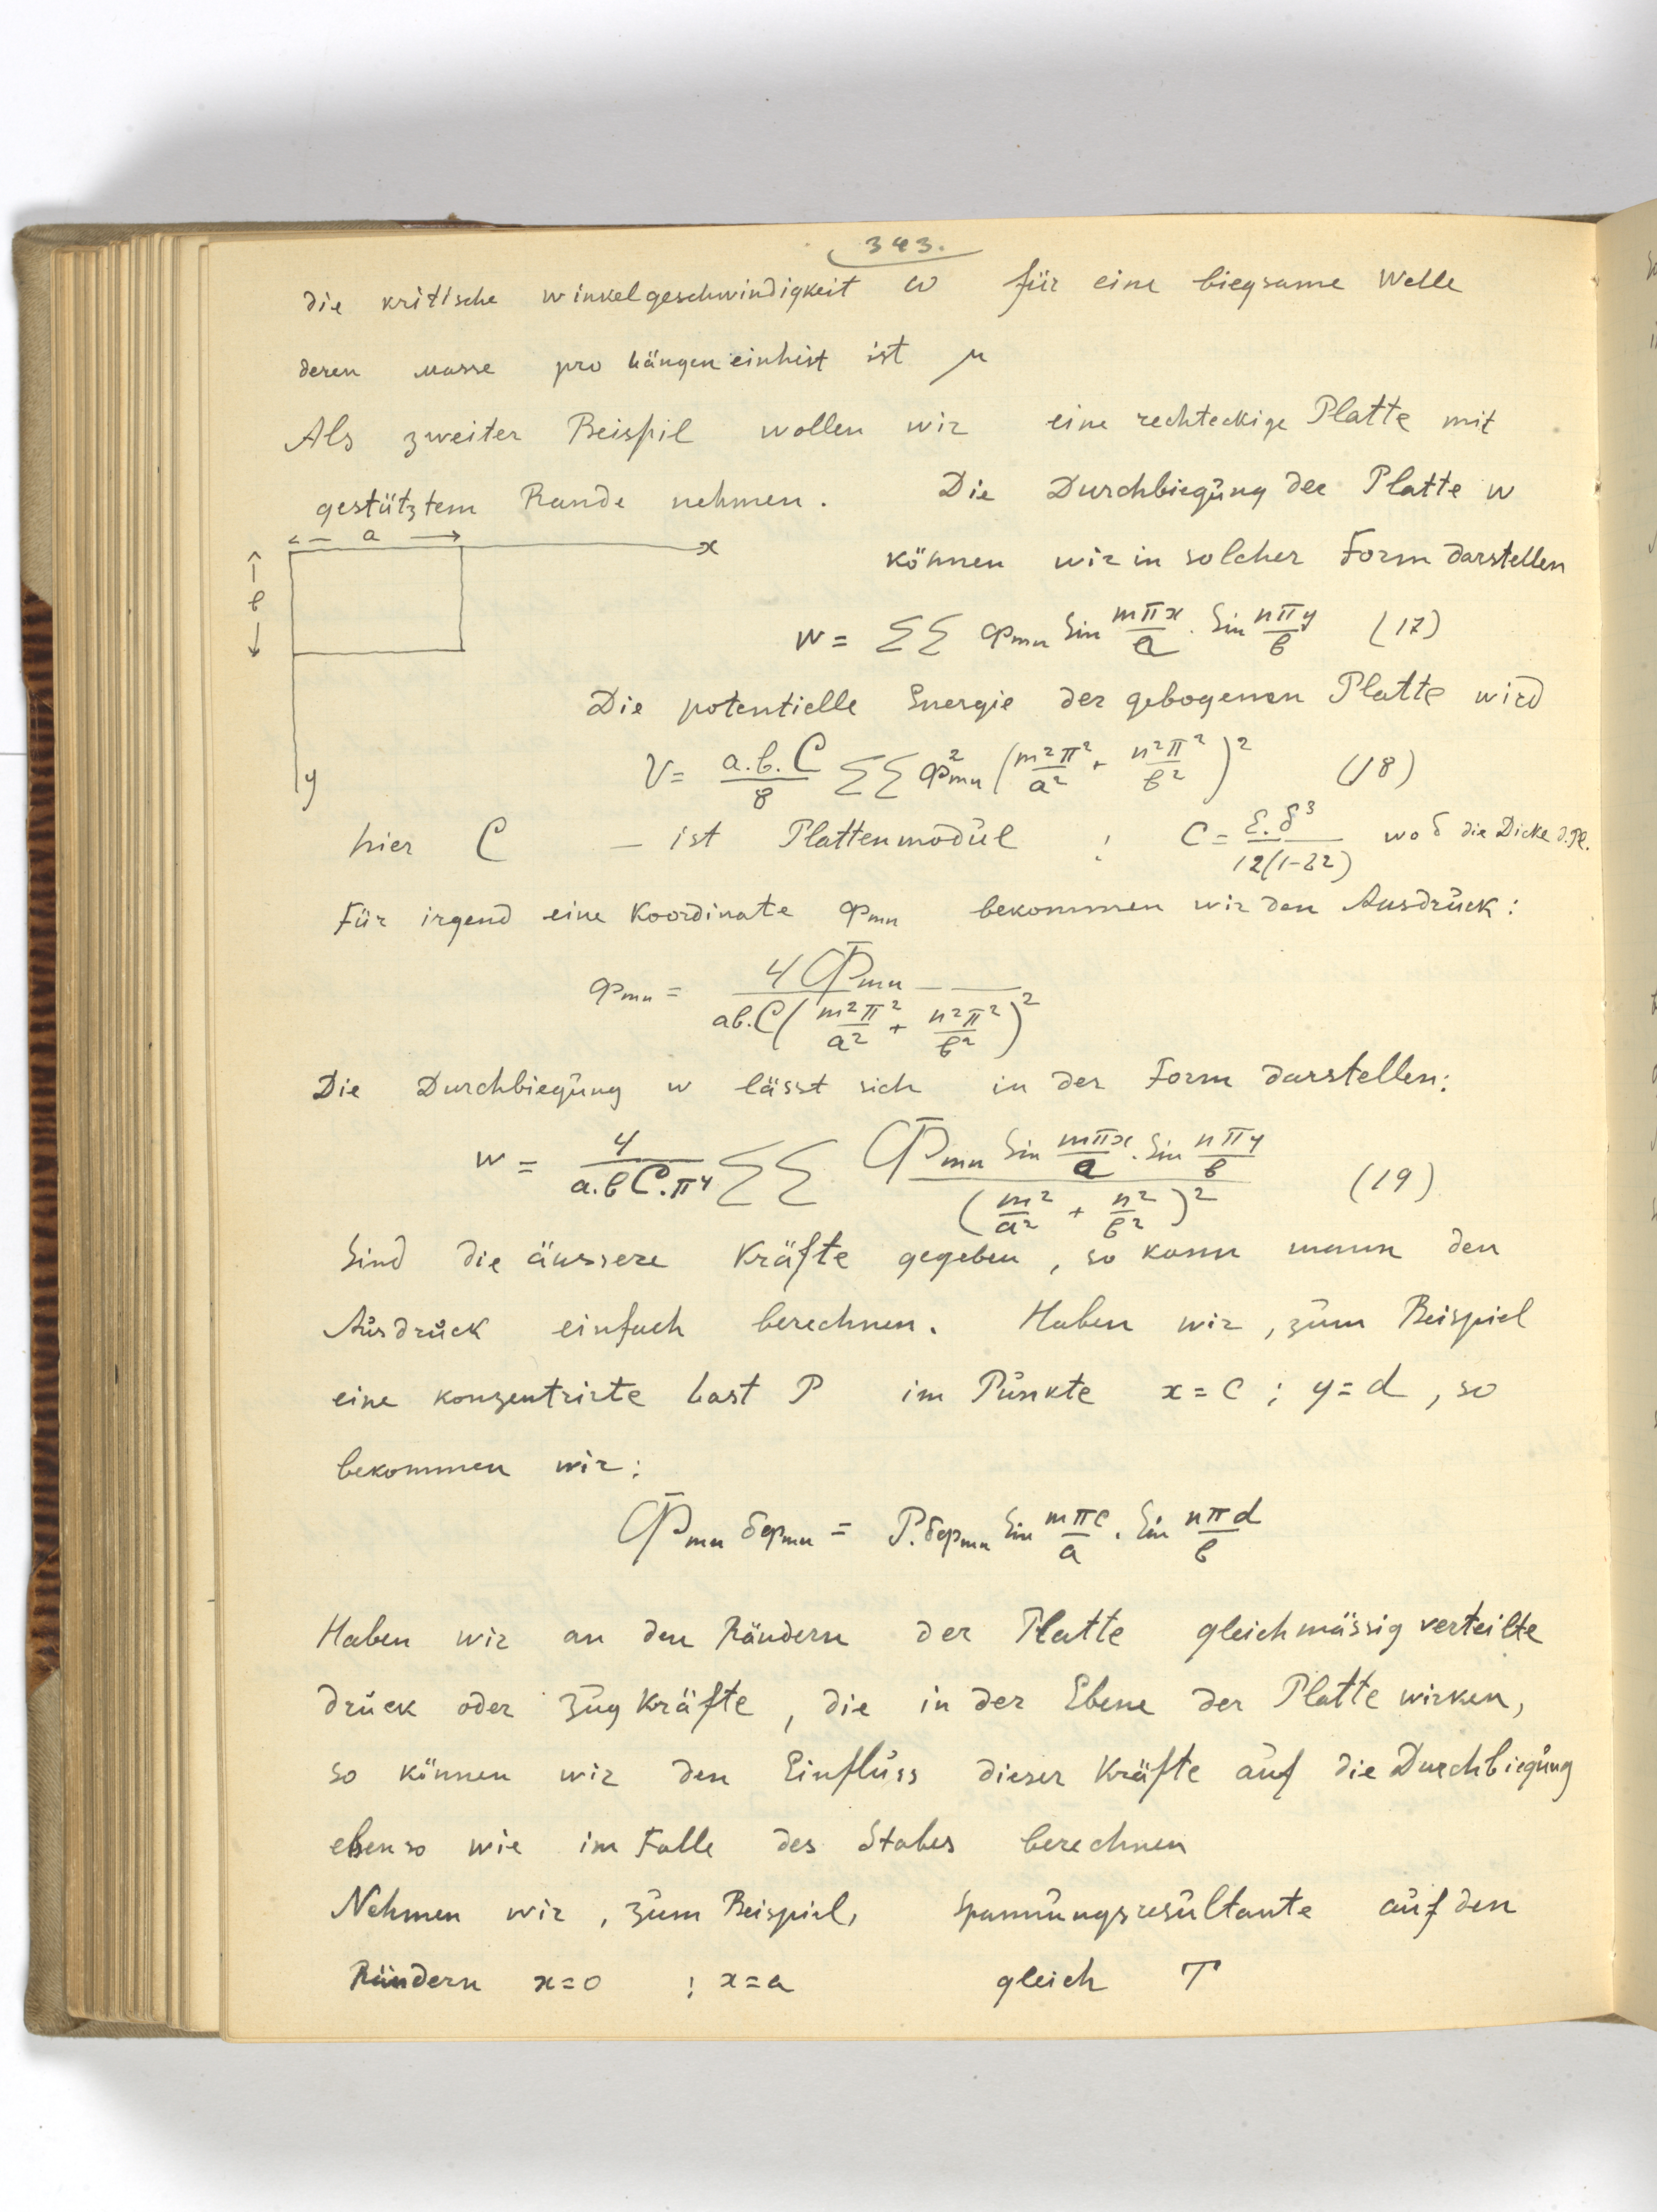 343.
die kritische winkelgeschwindigkeit ω für eine biegsame Welle
deren masse pro Längeneinheit ist μ
Als zweiter Beispil wollen wir eine rechteckige Platte mit
gestütztem Rande nehmen. Die Durchbiegung der Platte w
a
x
können wir in solcher Form darstellen
b
w = ΣΣ φmn Sin mπx/a . Sin nπy/b (17)
Die potentielle Energie der gebogenen Platte wird
V = a.b.C/8 ΣΣ φ²mn (m²π²/a² + n²π²/b²)² (18)
y
hier C – ist Plattenmodul ; C = E.δ³/12(1-σ²) wo δ die Dicke d.Pl.
Für irgend eine Koordinate φmn bekommen wir den Ausdruck:
φmn = 4Φmn/ab.C(m²π²/a² + n²π²/b²)²
Die Durchbiegung w lässt sich in der Form darstellen:
w = 4/a.bC.π⁴ ΣΣ Φmn Sin mπx/a . Sin nπy/b / (m²/a² + n²/b²)² (19)
Sind die äussere Kräfte gegeben, so kann mann den
Ausdruck einfach berechnen. Haben wir, zum Beispiel
eine konzentrirte Last P im Punkte x = c ; y = d, so
bekommen wir:
Φmn δφmn = P.δφmn Sin mπc/a . Sin nπd/b
Haben wir an den Rändern der Platte gleichmässig verteilte
druck oder Zug Kräfte, die in der Ebene der Platte wirken,
so können wir den Einfluss dieser Kräfte auf die Durchbiegung
ebenso wie im Falle des Stabes berechnen
Nehmen wir, zum Beispiel, Spannungsresultante auf den
Rändern x=0 ; x=a gleich T